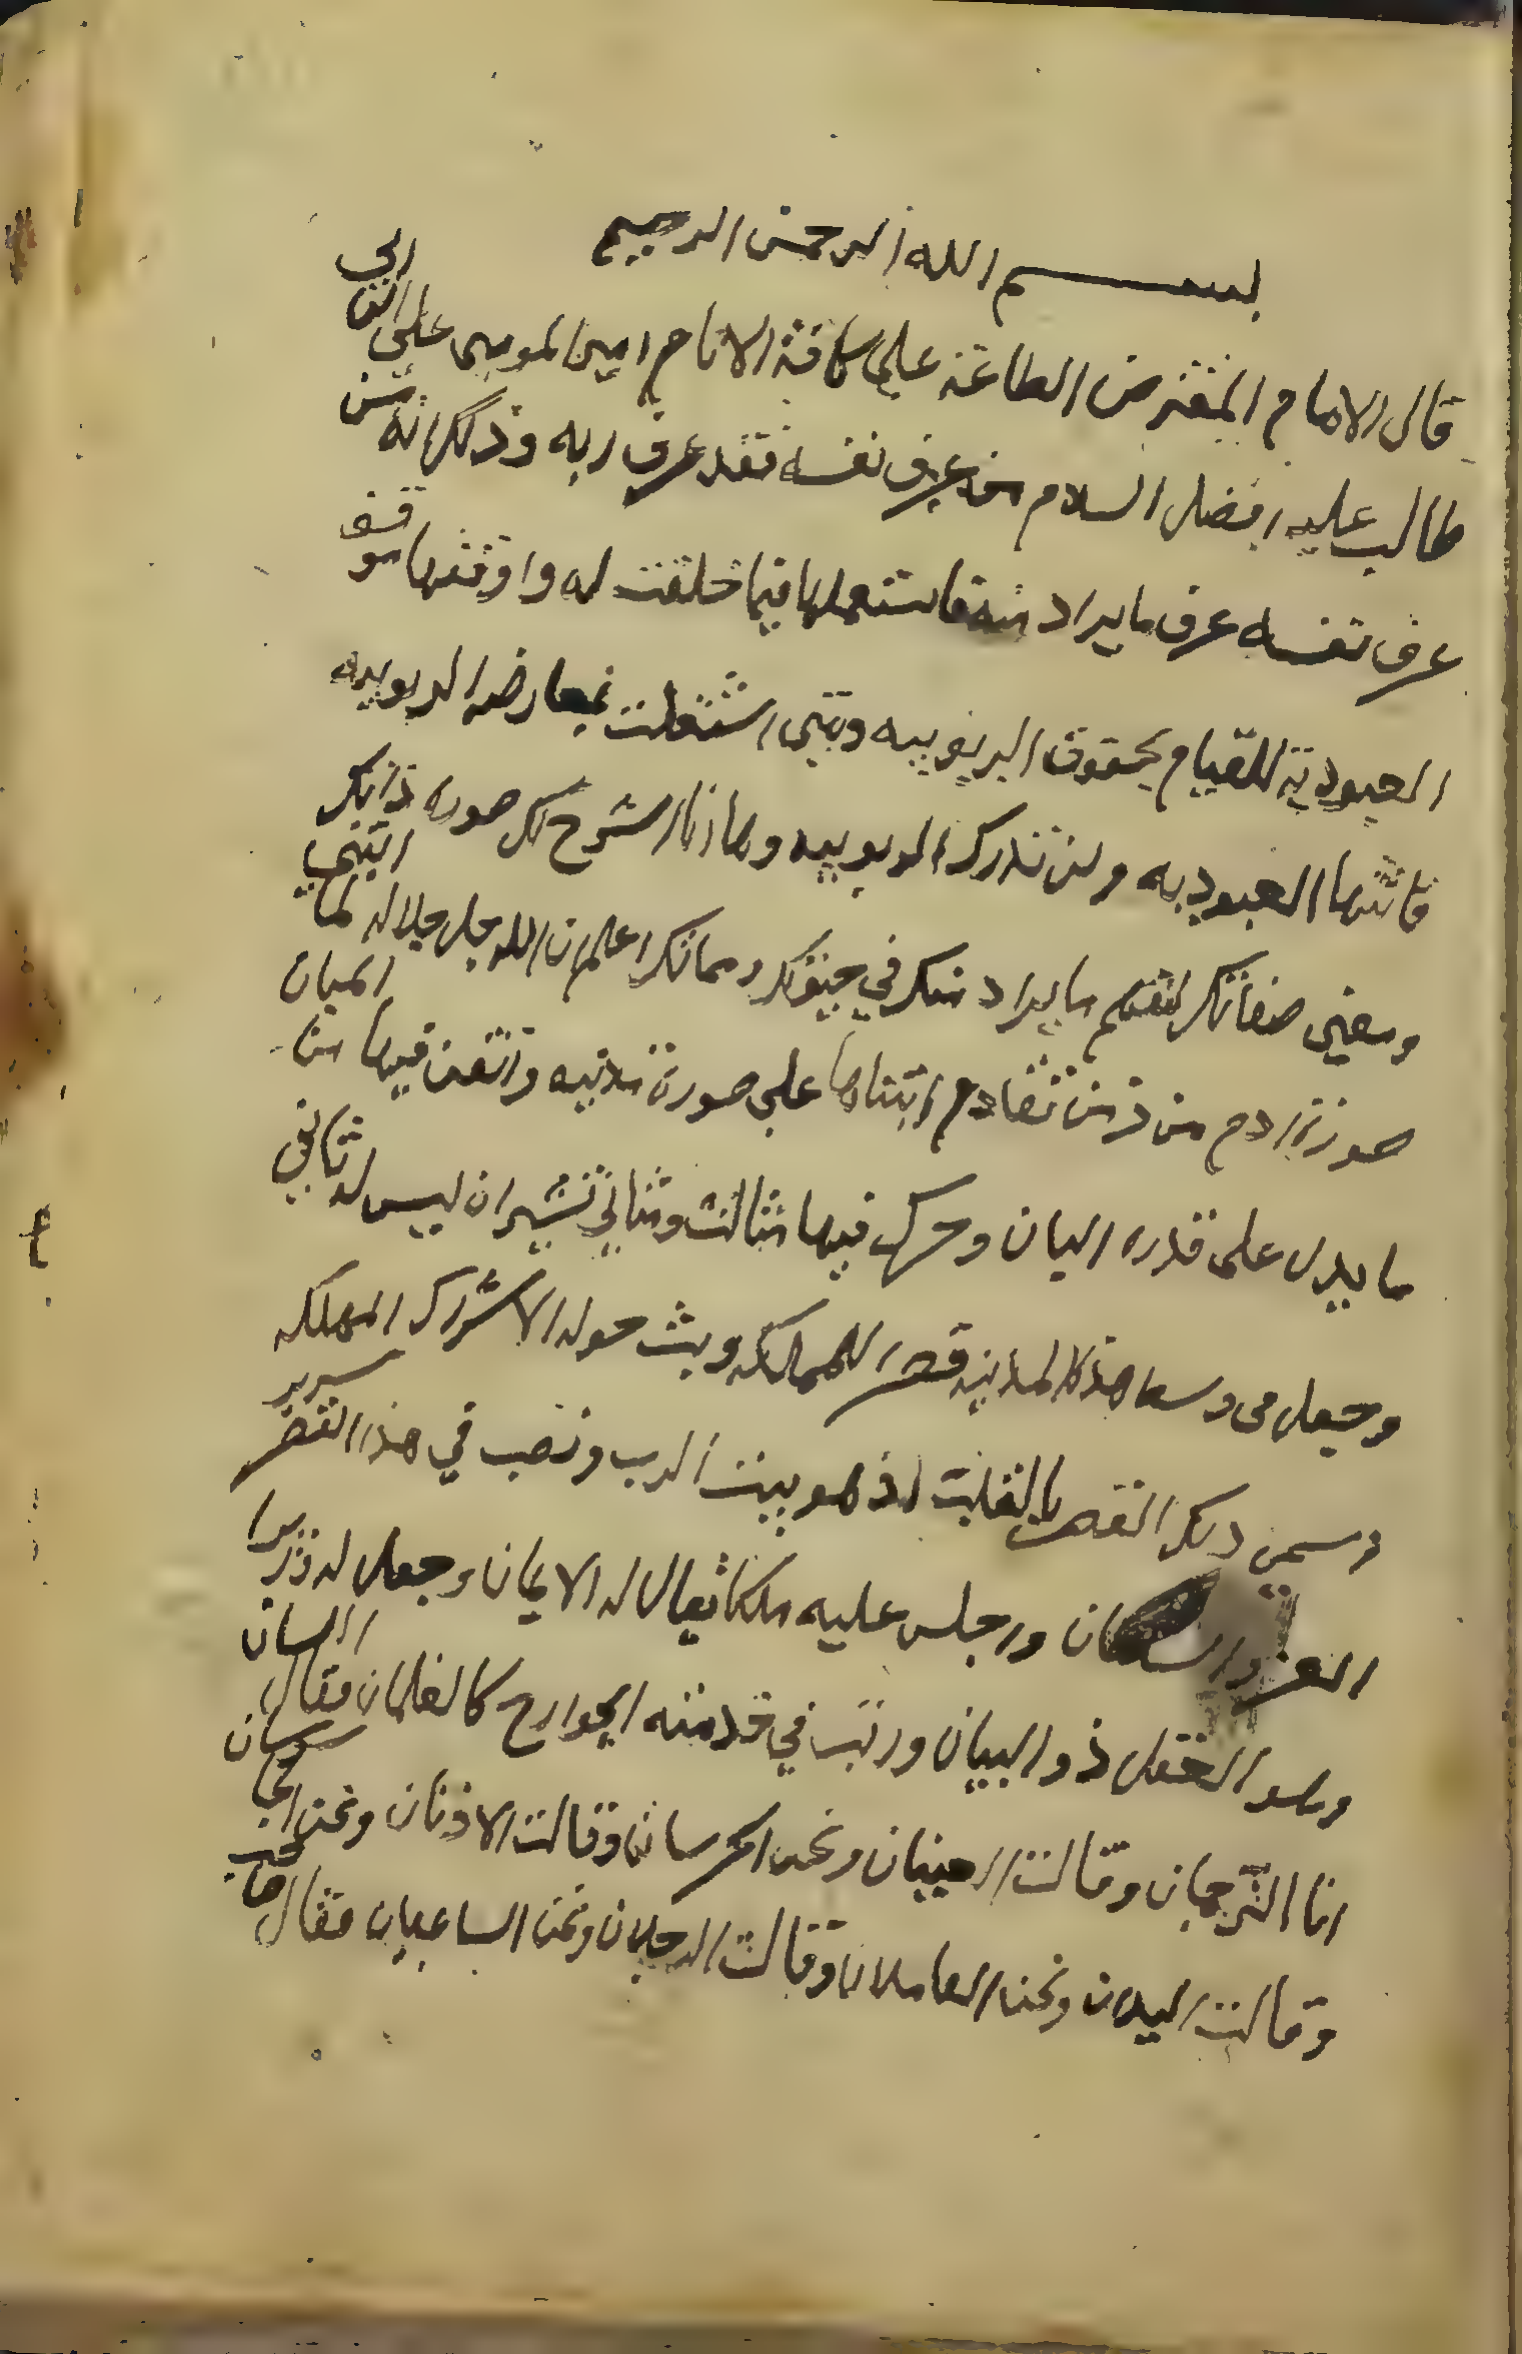 بسم الله الرحمن الرحيم
قال الامام المفترض الطاعة علي كافة الانام امير المومنين علي ابن ابي
طالب عليه افضل السلام من عرف نفسه فقد عرف ربه وذلك انه من
عرف نفسه عرف ما يراد منه فاستعملها فيما خلقت له واوقفها موقف
العبودية للقيام بحقوق الربوبيه ومتي اشتغلت بمعارضه الربوبيه
فاتتها العبوديه ولن تدرك الربوبيه وها انا اشرح لك صوره ذاتك
ومعني صفاتك لتفهم ما يراد منك في حيوتك ومماتك اعلم ان الله جل جلاله لما ابتني
صورة ادم من ابتناها علي صورة مدينه واتقن فيها من المبان
ما يدل على قدره البان وحرك فيها مثالث ومثاني تشير ان ليس له ثاني
وجعل في وسط هذه المدينه قصر المملكه وبث حوله الاشراك المهلكه
وسمي ذلك القصر بالقلب اذ هو بيت الرب ونصب في هذا القصر سرير
العز والسلطان واجلس عليه ملكا يقال له الايمان وجعل له وزيرا
وهو العقل ذو البيان ورتب في خدمته الجوارح كالغلمان فقال اللسان
انا الترجمان وقالت العينان ونحن الحرسان وقالت الاذنان ونحن الجاسوسان
وقالت اليدان ونحن العاملان وقالت الرجلان ونحن الساعيان فقال صاحب